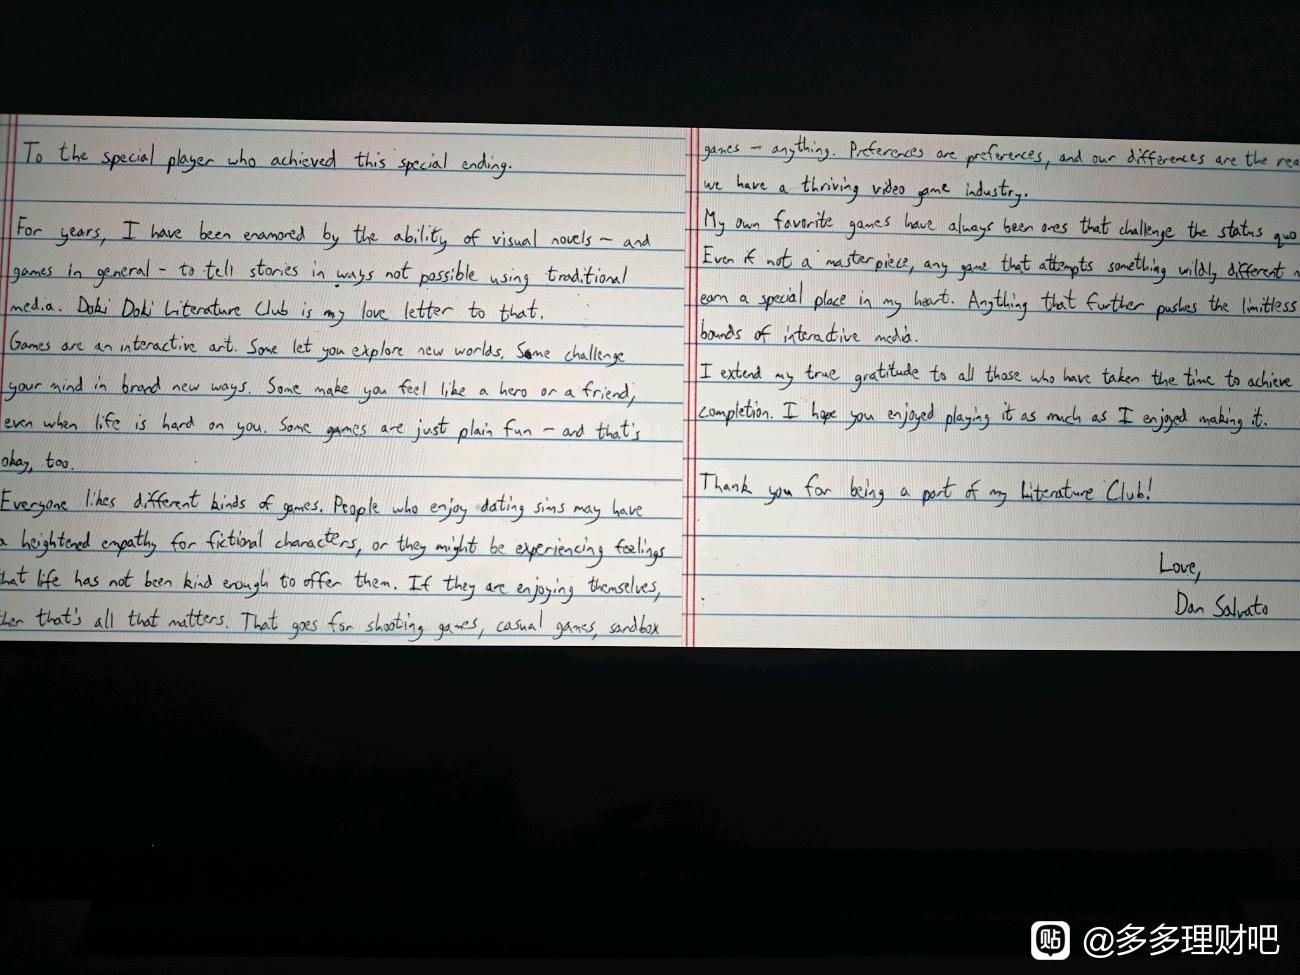 To the special player who achieved this special ending.
For years, I have been enamored by the ability of visual novels – and
games in general – to tell stories in ways not possible using traditional
media. Doki Doki Literature Club is my love letter to that.
Games are an interactive art. Some let you explore new worlds. Some challenge
your mind in brand new ways. Some make you feel like a hero or a friend,
even when life is hard on you. Some games are just plain fun – and that's
okay, too.
Everyone likes different kinds of games. People who enjoy dating sims may have
a heightened empathy for fictional characters, or they might be experiencing feelings
hat life has not been kind enough to offer them. If they are enjoying themselves,
hen that's all that matters. That goes for shooting games, casual games, sandbox
games – anything. Preferences are preferences, and our differences are the rea
we have a thriving video game industry.
My own favorite games have always been ones that challenge the status quo
Even if not a masterpiece, any game that attempts something wildly different
earn a special place in my heart. Anything that further pushes the limitless
bounds of interactive media.
I extend my true gratitude to all those who have taken the time to achieve
completion. I hope you enjoyed playing it as much as I enjoyed making it.
Thank you for being a part of my Literature Club!
Love,
Dan Salvato
贴 @多多理财吧